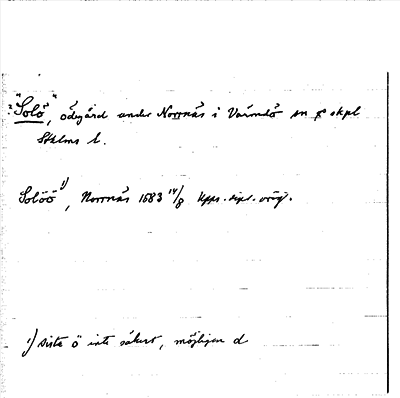 "Solö", ödegård under Norrnäs i Värmdö sn o skpl
Sthlms l.
Solöö 1), Norrnäs 1683 14/8 Upps. dipl. orig.
1) sista ö inte säkert, möjligen d